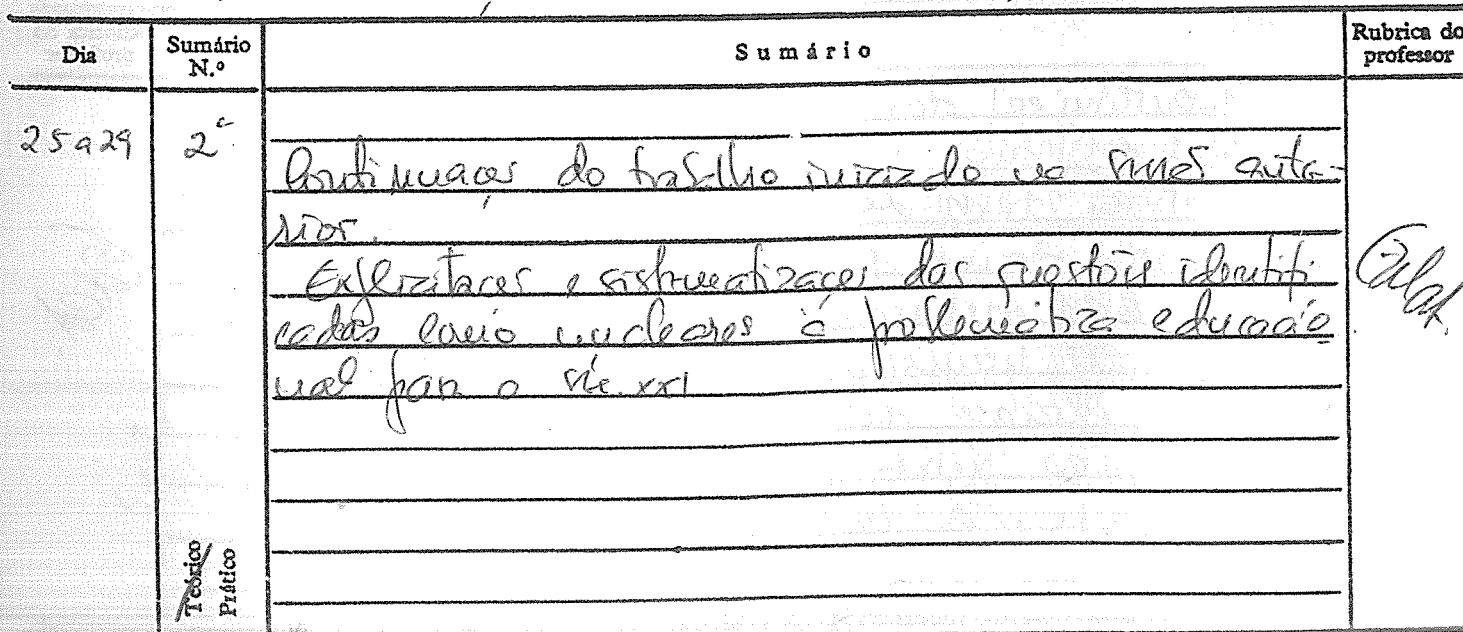 Dia Sumário N.º Sumário Rubrica do professor
25 a 29 2ª
Continuação do trabalho iniciado na sumário anterior.
rior.
Explicitação e sistematização das questões identifi
cadas como nucleares à problemática educacio
nal para o séc. XXI
Teórico
Prático